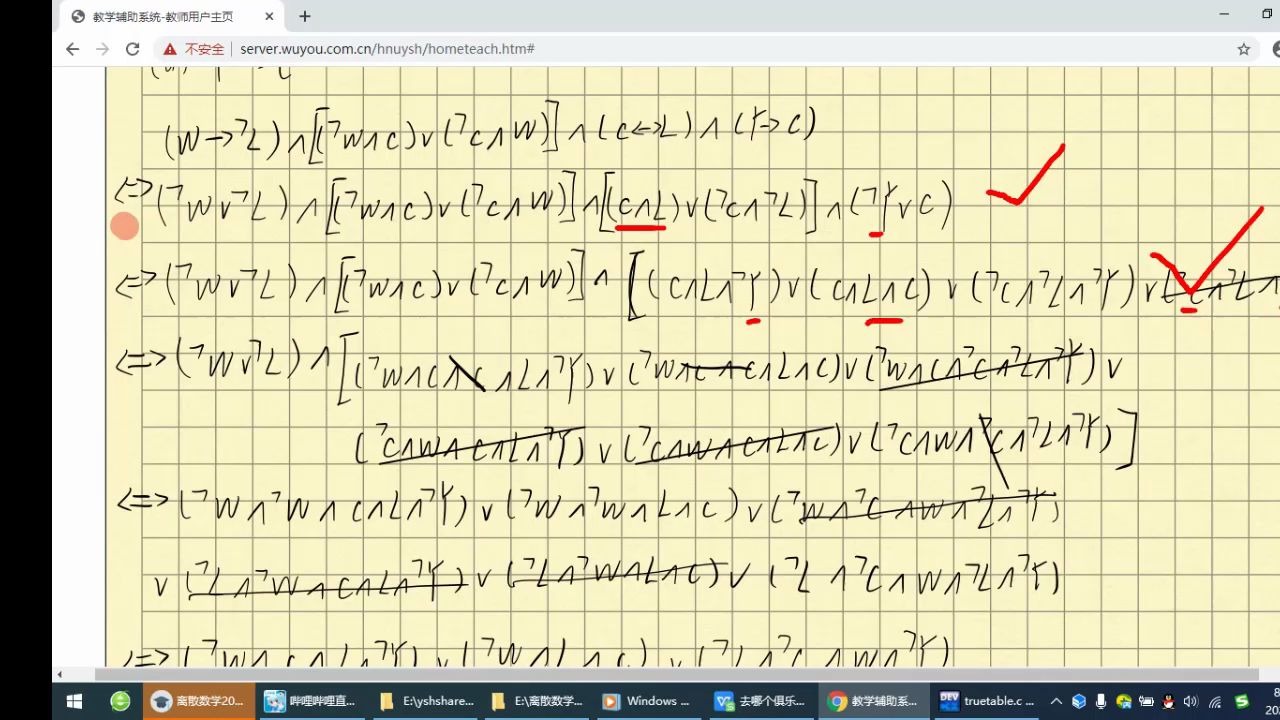 教学辅助系统-教师用户主页
不安全 server.wuyou.com.cn/hnuysh/hometeach.htm#
(W→¬L)∧[(¬W∧C)∨(¬C∧W)]∧(C↔L)∧(Y→C)
⇔(¬W∨¬L)∧[(¬W∧C)∨(¬C∧W)]∧[(C∧L)∨(¬C∧¬L)]∧(¬Y∨C)
⇔(¬W∨¬L)∧[(¬W∧C)∨(¬C∧W)]∧[(C∧L∧¬Y)∨(C∧L∧C)∨(¬C∧¬L∧¬Y)∨(¬C∧¬L∧
⇔(¬W∨¬L)∧[(¬W∧C∧C∧L∧¬Y)∨(¬W∧C∧C∧L∧C)∨(¬W∧C∧¬C∧¬L∧¬Y)∨
(¬C∧W∧C∧L∧¬Y)∨(¬C∧W∧C∧L∧C)∨(¬C∧W∧¬C∧¬L∧¬Y)]
⇔(¬W∧¬W∧C∧L∧¬Y)∨(¬W∧¬W∧L∧C)∨(¬W∧¬C∧W∧¬L∧¬Y)
∨(¬L∧¬W∧C∧L∧¬Y)∨(¬L∧¬W∧L∧C)∨(¬L∧¬C∧W∧¬L∧¬Y)
⇔(¬W∧C∧L∧¬Y)∨(¬W∧L∧C)∨(¬L∧¬C∧W∧¬Y)
离散数学20... 哔哩哔哩直... E:\yshshare... E:\离散数学... Windows ... 去哪个俱乐... 教学辅助系... truetable.c ...